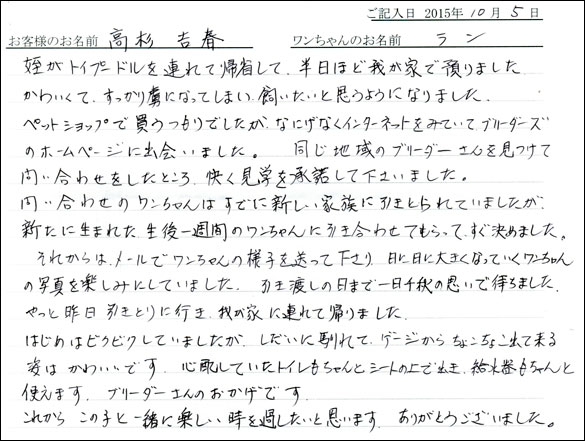 ご記入日 2015年10月5日
お客様のお名前 高杉 吉春 ワンちゃんのお名前 ラン
姪がトイプードルを連れて帰省して、半日ほど我が家で預りました
かわいくて、すっかり虜になってしまい飼いたいと思うようになりました。
ペットショップで買うつもりでしたが、なにげなくインターネットをみていて、ブリーダーズ
のホームページに出会いました。 同じ地域のブリーダーさんを見つけて
問い合わせをしたところ、快く見学を承諾して下さいました。
問い合わせのワンちゃんはすでに新しい家族に引きとられていましたが、
新たに生まれた生後一週間のワンちゃんに引き合わせてもらって、すぐ決めました。
それからは、メールでワンちゃんの様子を送って下さり 日に日に大きくなっていくワンちゃん
の写真を楽しみにしていました。 引き渡しの日まで一日千秋の思いで待ちました。
やっと昨日引きとりに行き、我が家に連れて帰りました。
はじめはビクビクしていましたが、しだいに馴れて、ゲージからちょこちょこ出て来る
姿はかわいいです。 心配していたトイレもちゃんとシートの上で出き、給水器もちゃんと
使えます。 ブリーダーさんのおかげです。
これからこの子と一緒に楽しい時を過したいと思います。 ありがとうございました。